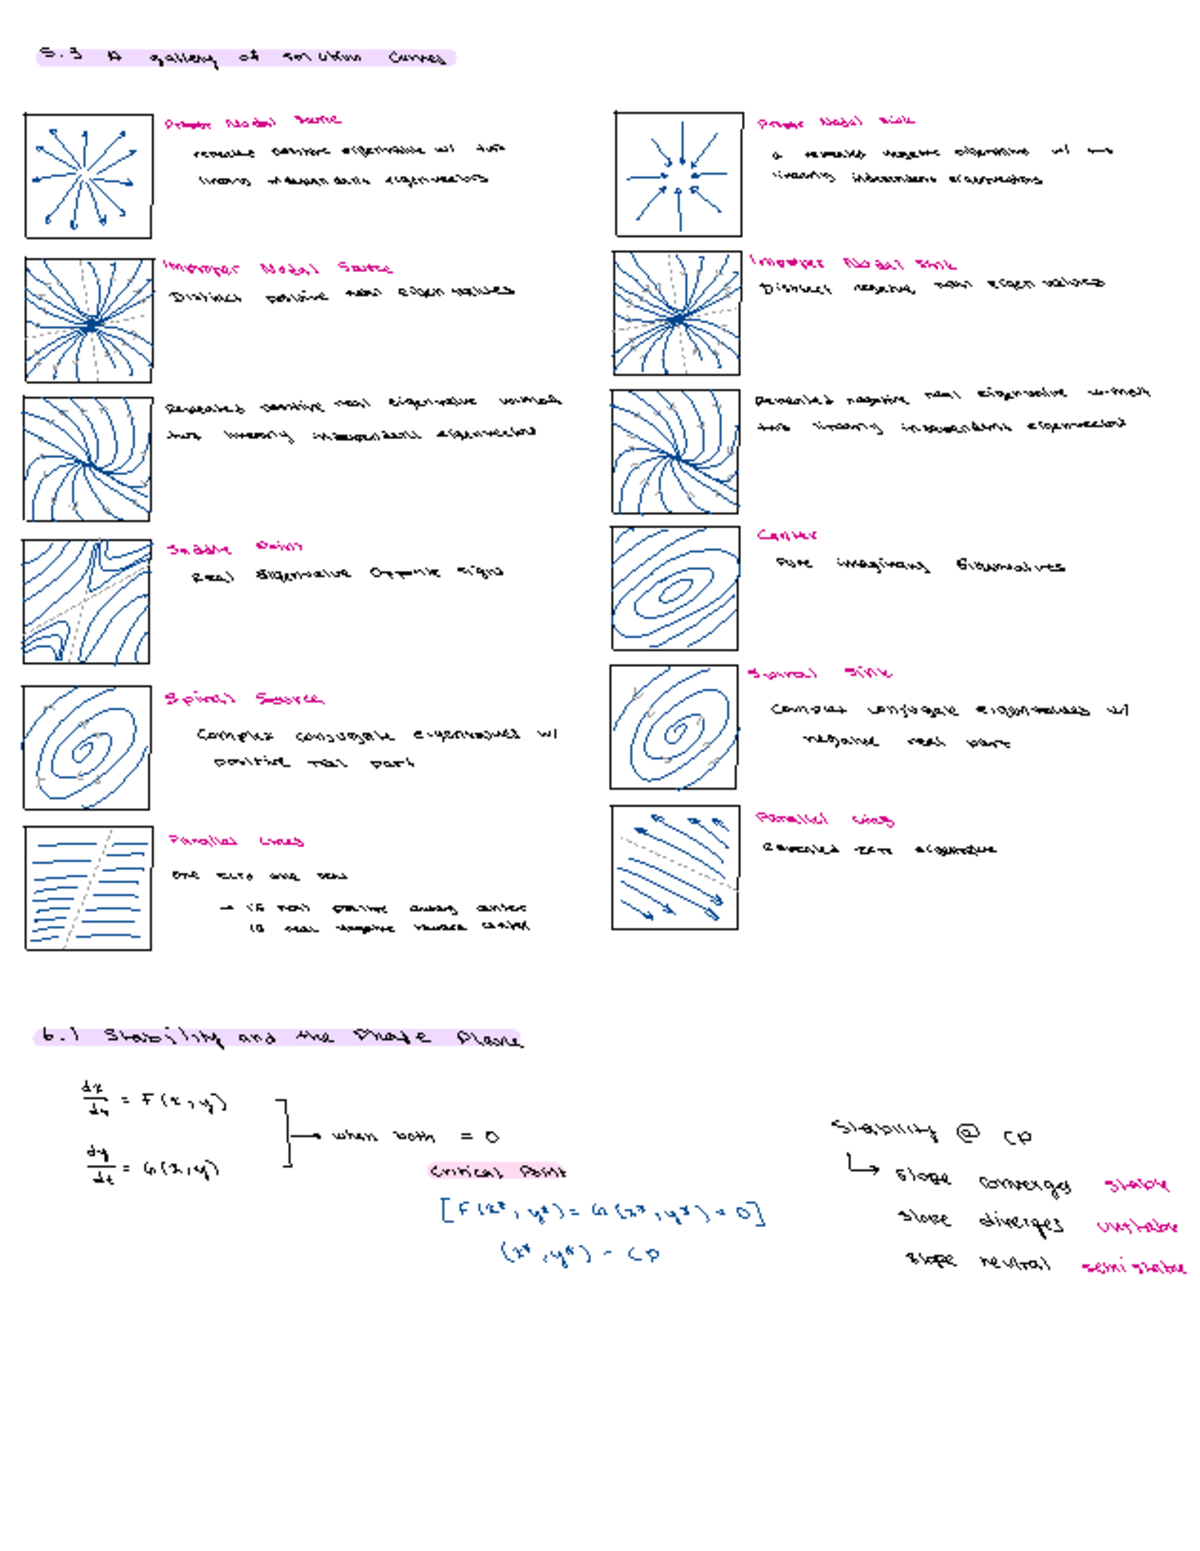 5.3 A gallery of solution curves
Proper Nodal Source
repeated positive eigenvalue w/ two
linearly independent eigenvectors
Improper Nodal Source
Distinct positive real eigen values
Repeated positive real eigenvalue without
two linearly independent eigenvectors
Saddle Point
Real Eigenvalue Opposite signs
Spiral Source
Complex conjugate eigenvalues w/
positive real part
Parallel Lines
one zero one real
→ if real positive away center
if real negative towards center
Proper Nodal Sink
a repeated negative eigenvalue w/ two
linearly independent eigenvectors
Improper Nodal Sink
Distinct negative real eigen values
Repeated negative real eigenvalue without
two linearly independent eigenvectors
Center
Pure imaginary Eigenvalues
Spiral Sink
Complex conjugate eigenvalues w/
negative real part
Parallel Lines
Repeated zero eigenvalue
6.1 Stability and the Phase Plane
dx/dt = F(x,y)
dy/dt = G(x,y)
→ when both = 0
Critical Point
[F(x*, y*) = G(x*, y*) = 0]
(x*, y*) - CP
Stability @ CP
→ slope converges stable
slope diverges unstable
slope neutral semi stable